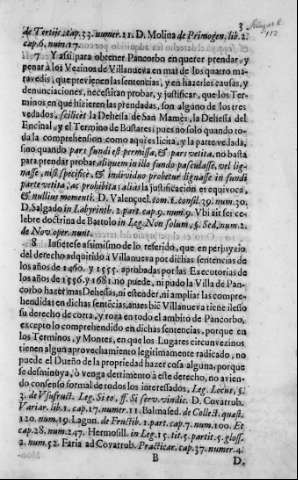 3
de Tertijs, cap. 33. numer. 11. D. Molina de Primogen. lib. 2.
cap. 6. num. 17.
7 Y assi para obtener Pancorbo en querer prendar, y
penar à los Vezinos de Villanueva en mas de los quatro ma-
ravedis, que previenen las sentencias, y en hazerles causas, y
denunciaciones, necesitan probar, y justificar, que los Ter-
minos en què hizieren las prendadas, son alguno de los tres
vedados, scilicèt la Dehesa de San Mamès, la Dehesa del
Encinal, y el Termino de Bustares; pues no solo quando to-
da la comprehension como aqui es licita, y la parte vedada,
sino quando pars fundi est permissa, & pars vetita, no basta
para prendar probar, aliquem in illo fundo pascuisse, vel lig-
nasse, nisi specificè, & individuo probetur lignasse in fundi
parte vetita, ac prohibita; aliàs la justificacion es equivoca,
& nullius momenti. D. Valençuel. tom. 1. consil. 29. num. 30.
D. Salgado in Labyrinth. 2. part. cap. 9. num. 9. Vbi ait ser ce-
lebre doctrina de Bartolo in Leg. Non solum, §. Sed, num. 2.
de Nov. oper. nunt.
8 Infierese assimismo de lo referido, que en perjuyzio
del derecho adquirido à Villanueva por dichas sentencias de
los años de 1460. y 1555. aprobadas por las Executorias de
los años de 1556. y 1681. no puede, ni pudo la Villa de Pan-
corbo hazer mas Dehesas, ni estender, ni ampliar las compre-
hendidas en dichas sentècias, antes biè Villanueva tiene ileso
su derecho de corta, y roza en todo el ambito de Pancorbo,
excepto lo comprehendido en dichas sentencias, porque en
los Terminos, y Montes, en que los Lugares circunvezinos
tienen algun aprovechamiento legitimamente radicado, no
puede el Dueño de la propriedad hazer cosa alguna, porque
se desminuya, ò venga detrimento à este derecho, no avien-
do consenso formal de todos los interesados, Leg. Locus, §.
3. de Vsufruct. Leg. Si eo, ff. Si serv. vindic. D. Covarrub.
Variar. lib. 1. cap. 17. numer. 11. Balmased. de Collect. quæst.
120. num. 19. Lagun. de Fructib. 1. part. cap. 7. num. 100. Et
cap. 28. num. 247. Hermosill. in Leg. 15. tit. 5. partit. 5. gloss.
2. num. 52. Faria ad Covatrub. Practicar. cap. 37. numer. 4.
B D.